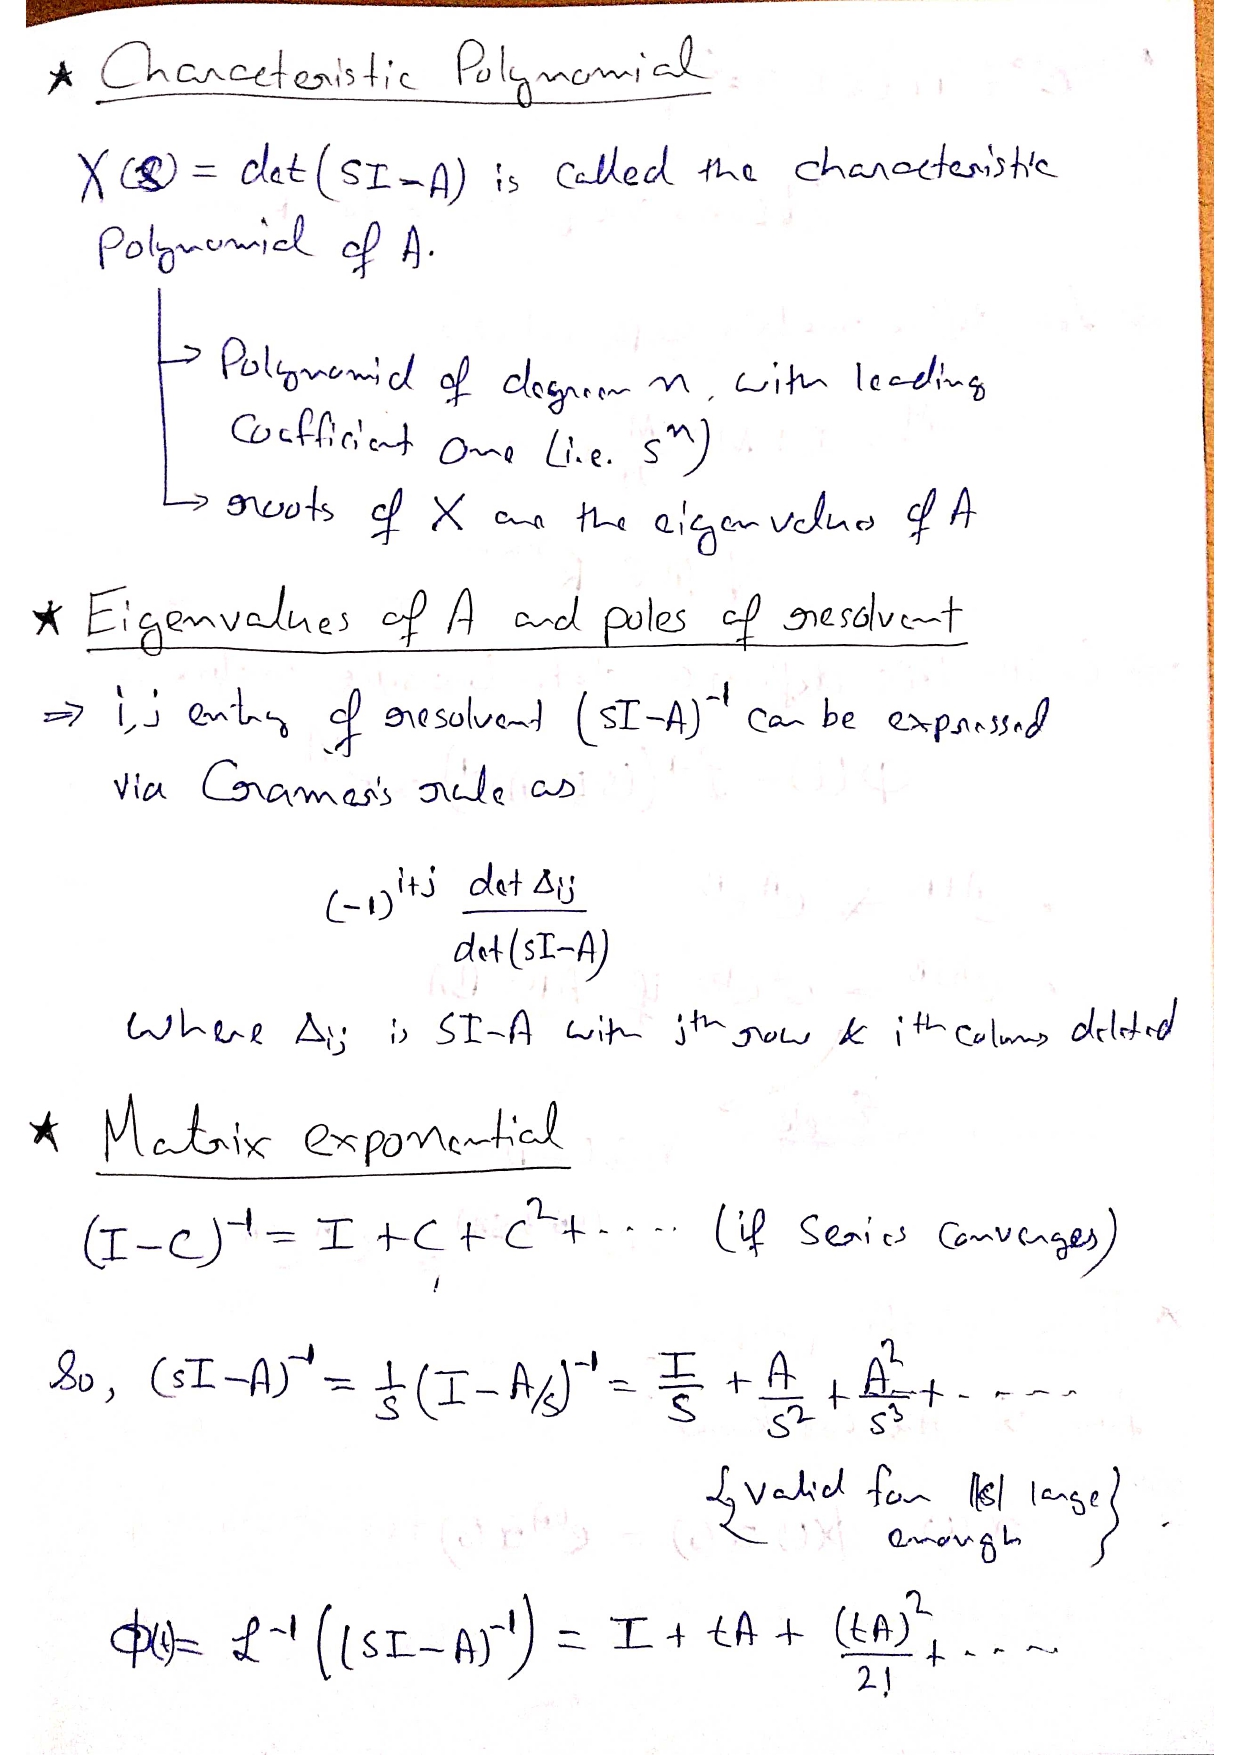 ★ Characteristic Polynomial
X(s) = det(SI-A) is called the characteristic
Polynomial of A.
→ Polynomial of degree n, with leading
Coefficient one (i.e. sⁿ)
→ roots of X are the eigenvalues of A
★ Eigenvalues of A and poles of resolvent
⇒ i,j entry of resolvent (SI-A)⁻¹ can be expressed
via Cramer's rule as
(-1)^(i+j) det Δij / det(SI-A)
Where Δij is SI-A with jth row & ith column deleted
★ Matrix exponential
(I-C)⁻¹ = I + C + C² + .... (if Series Converges)
So, (SI-A)⁻¹ = 1/S (I-A/s)⁻¹ = I/S + A/S² + A²/S³ + .....
{valid for |s| large
enough}
Φ(t) = ℒ⁻¹((SI-A)⁻¹) = I + tA + (tA)²/2! + ....